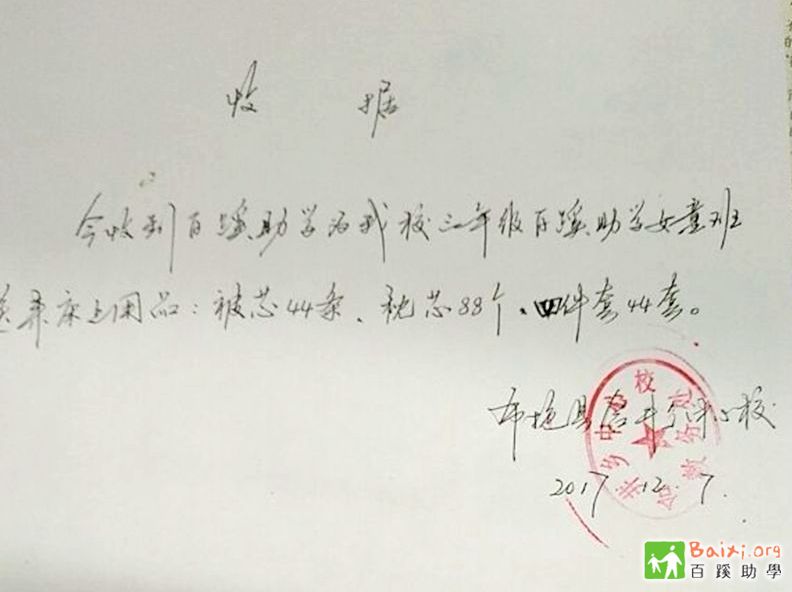 收 据
今收到百蹊助学为我校三年级百蹊助学女童班
床上用品：被芯44条、枕芯88个、四件套44套。
布拖县 中心校
2017.12.7.
Baixi.org
百蹊助學